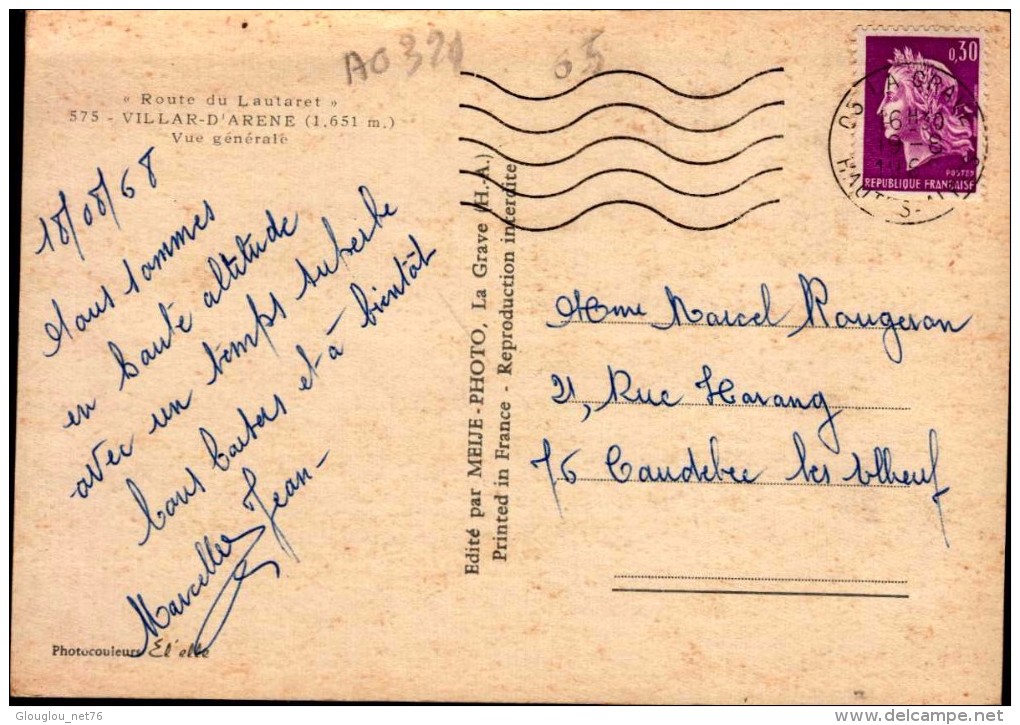 A0321
65
« Route du Lautaret »
575 - VILLAR-D'ARENE (1.651 m.)
Vue générale
18/08/68
Nous sommes
en haute altitude
avec un temps superbe
bons baisers et à bientôt
Marcelle Jean-
Photocouleurs
Edité par MEIJE-PHOTO, La Grave (H.A.)
Printed in France - Reproduction interdite
0,30
POSTES
REPUBLIQUE FRANÇAISE
05 LA GRAVE
16H30
19-8
HAUTES-ALPES
Mme Marcel Rougeron
21, Rue Harang
76 Caudebec les Elbeuf
Glouglou_net76
delcampe.net